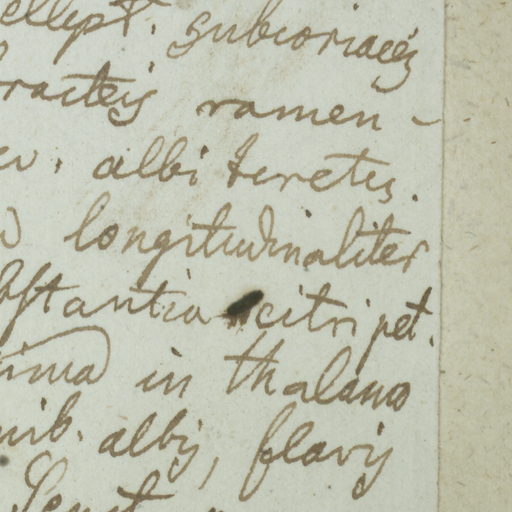 ellipt. subcoriaceis
racteis ramen-
ev. albi teretes.
longitudinaliter
bstantia citri pet.
in thalamo
nib. albis, flavis